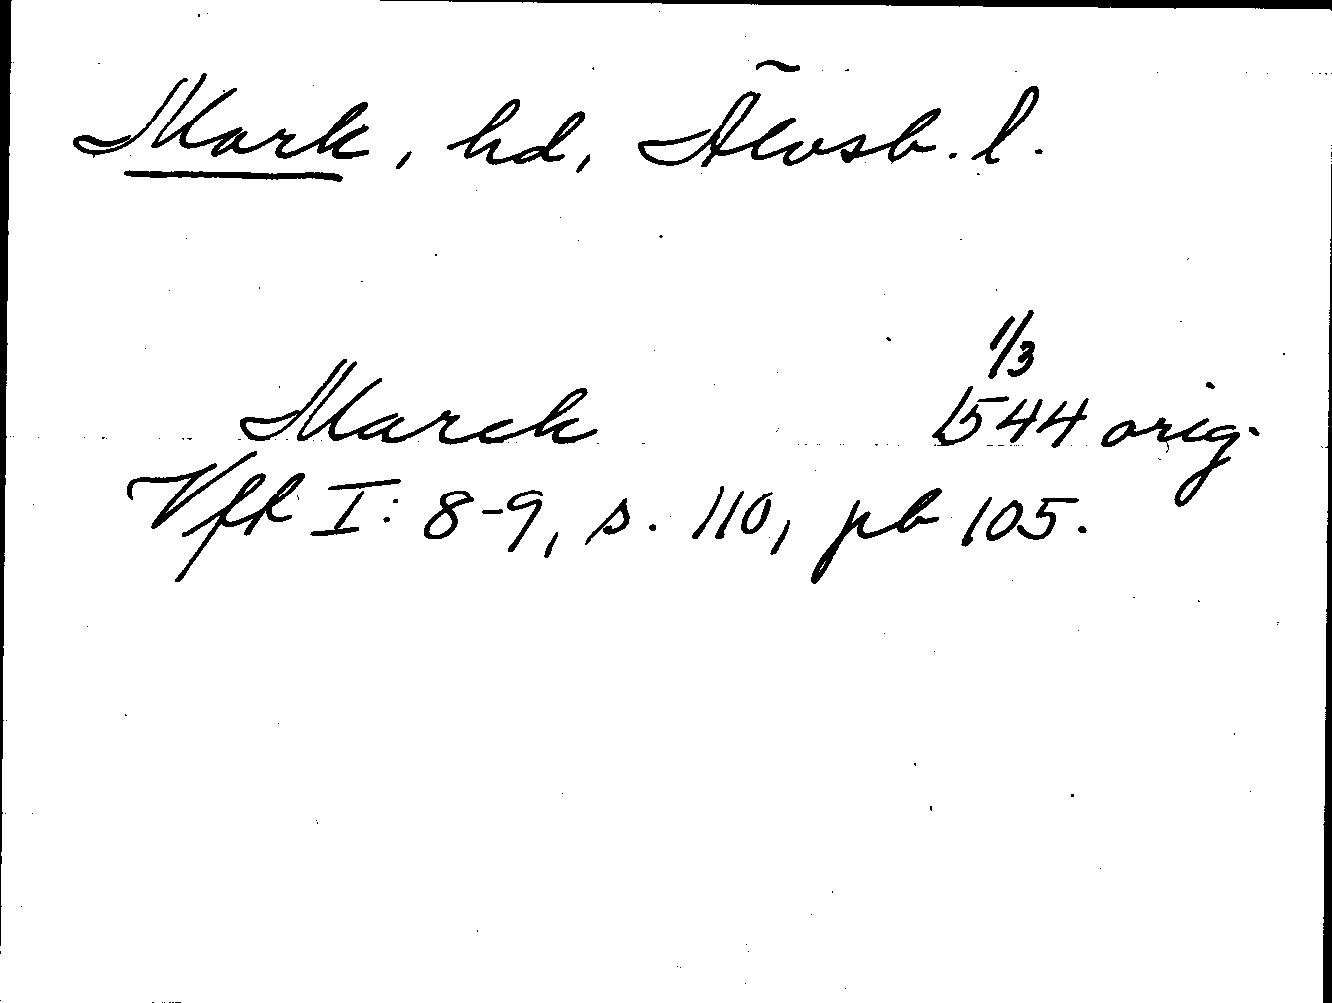 Mark, hd, Älvsb. l.
1/3
Marck 1544 orig.
Vff I: 8-9, s. 110, pb 105.